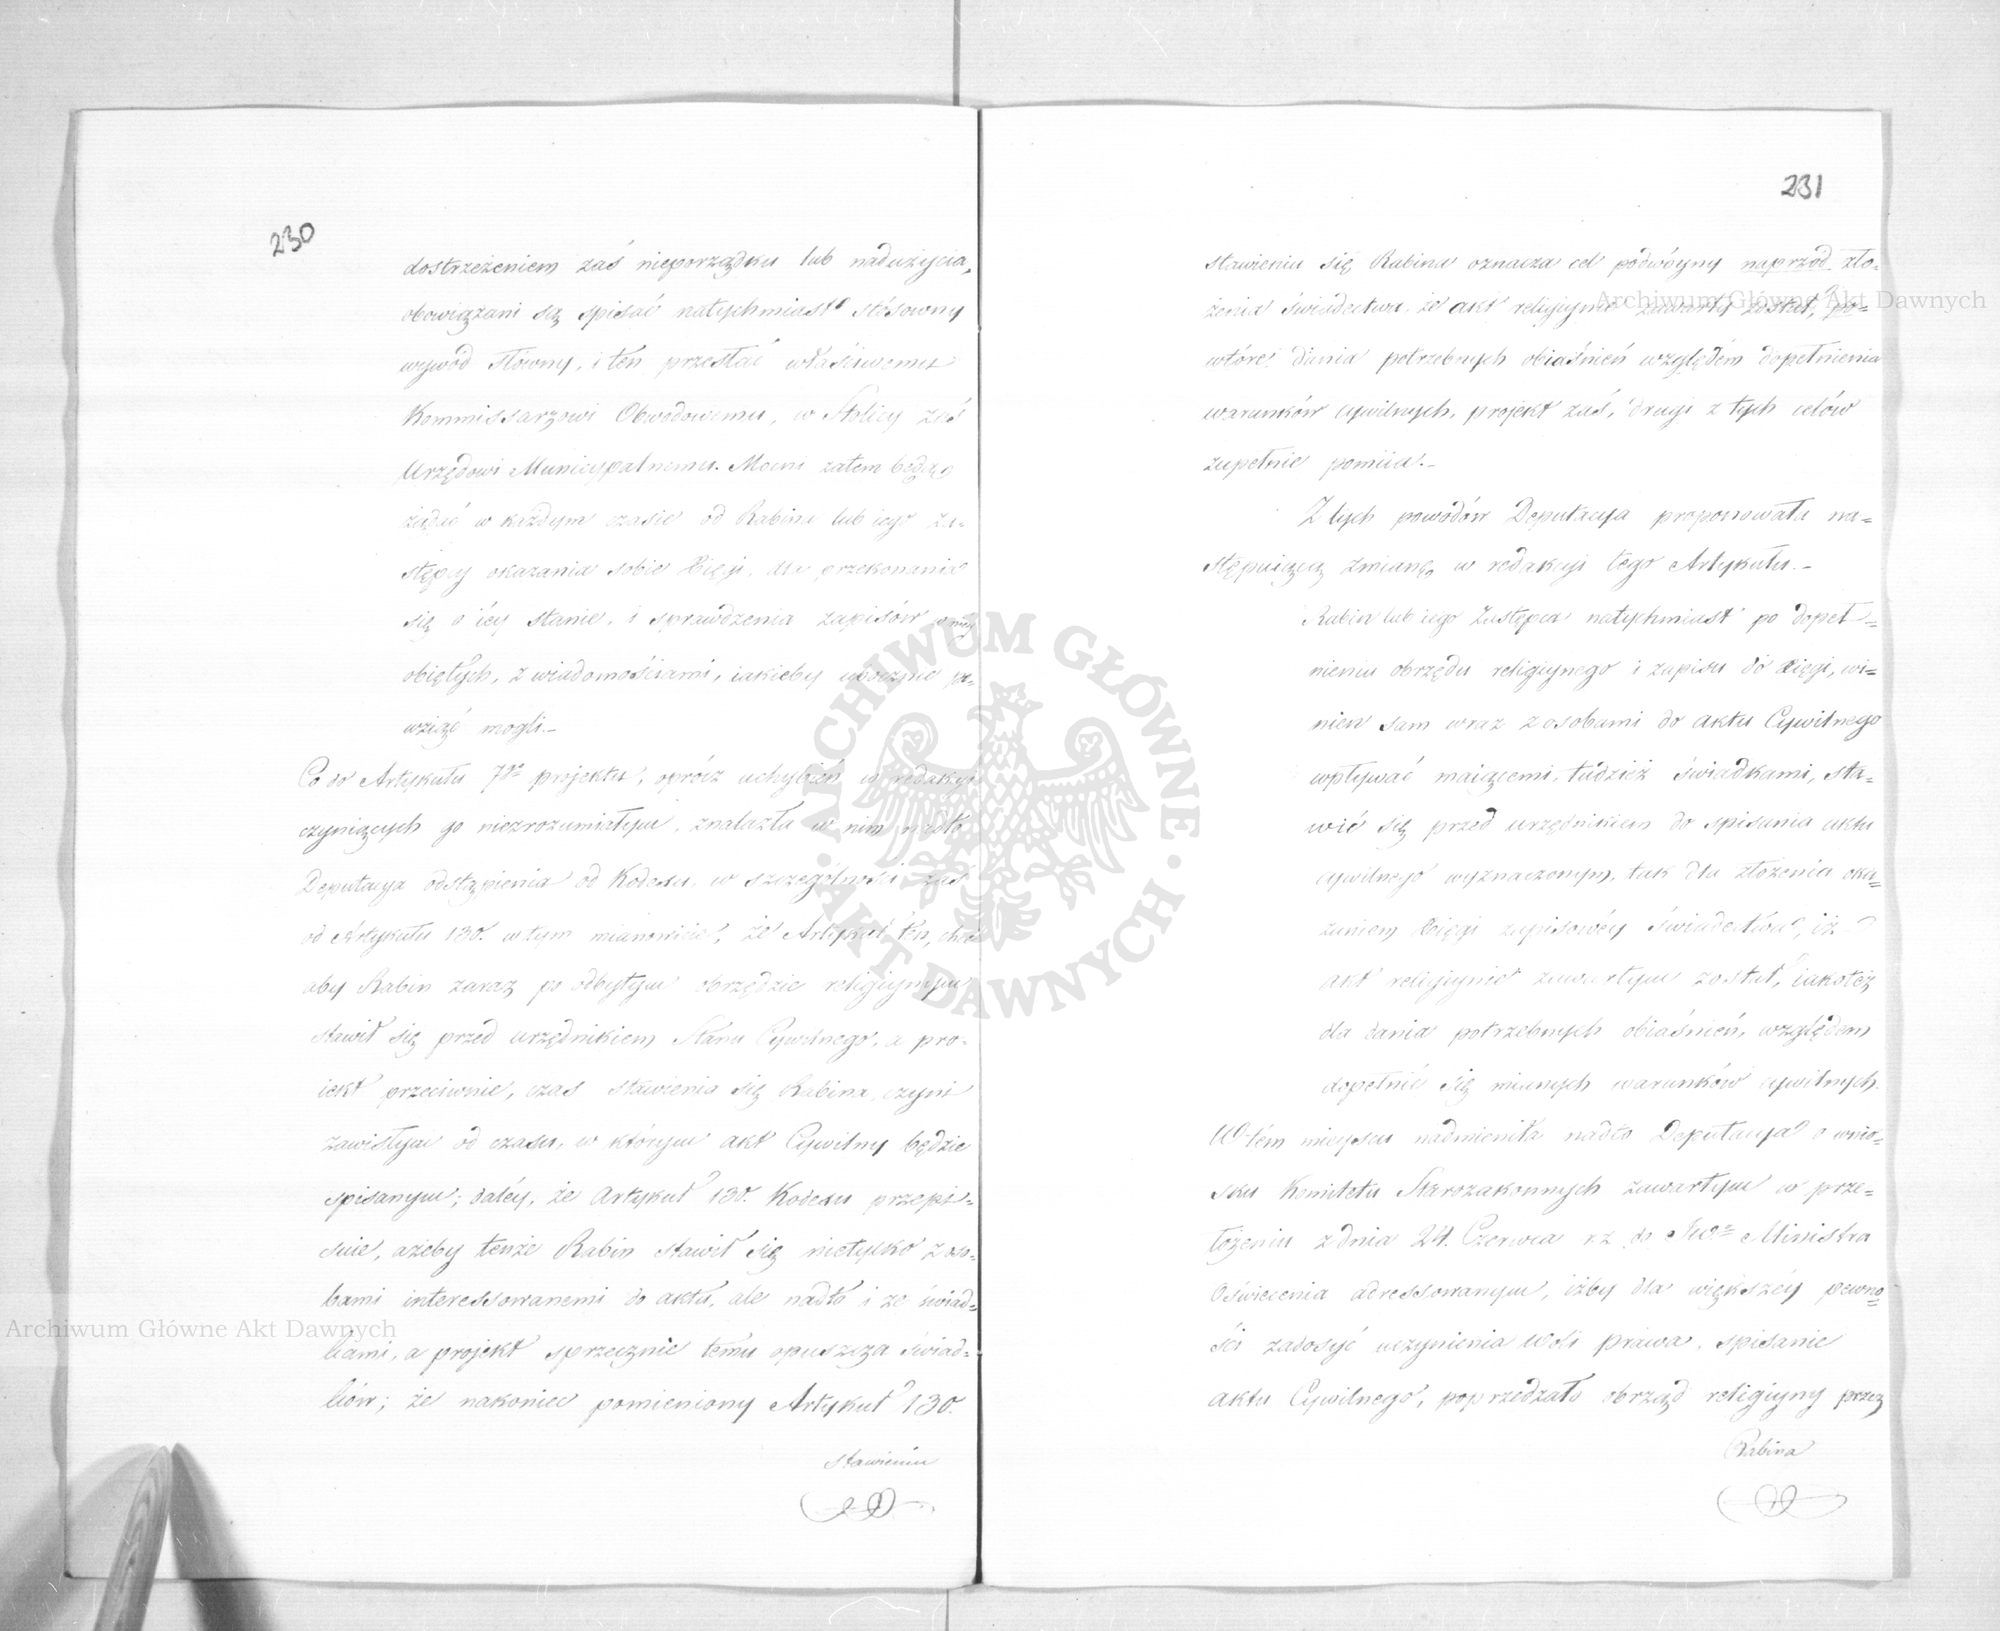 230
dostrzeżeniem zaś nieporządku lub nadużycia,
obowiązani są spisać natychmiast stósowny
wywód słówny, i ten przesłać właściwemu
Kommissarzowi Obwodowemu, w Stolicy zaś
Urzędowi Municypalnemu. Mocni zatem będą
żądać w każdym czasie od Rabina lub iego za-
stępcy okazania sobie Xięgi, dla przekonania
się o iéy stanie, i sprawdzenia zapisów w niéy
obiętych, z wiadomościami, iakieby ubocznie po-
wziąć mogli.-
Co do Artykułu 7go projektu, oprócz uchybień w redakcyi
czyniących go niezrozumiałym, znalazła w nim nadto
Deputacya odstąpienia od Kodexu, w szczególności zaś
od Artykułu 130. w tym mianowicie, że Artykuł ten, chce
aby Rabin zaraz po odbytym obrzędzie religiynym
stawił się przed urzędnikiem Stanu Cywilnego, a pro-
iekt przeciwnie, czas stawienia się Rabina, czyni
zawisłym od czasu, w którym akt Cywilny będzie
spisanym; daléy, że Artykuł 130. Kodexu przepi-
suie, ażeby tenże Rabin stawił się nietylko z oso-
bami interessowanemi do aktu, ale nadto i ze świad=
kami, a projekt sprzecznie temu opuszcza świad=
ków; że nakoniec pomieniony Artykuł 130.
stawieniu
231
stawieniu się Rabina oznacza cel podwóyny naprzód zło-
żenia świadectwa, że akt religiynie zawarty został, po-
wtóre: dania potrzebnych obiaśnień względem dopełnienia
warunków cywilnych, projekt zaś, drugi z tych celów
zupełnie pomiia.-
Z tych powodów Deputacya proponowała na=
stępuiącą zmianę w redakcyi tego Artykułu.-
Rabin lub iego Zastępca natychmiast po dopeł-
nieniu obrzędu religiynego i zapisu do Xięgi, wi-
nien sam wraz z osobami do aktu Cywilnego
wpływać maiącemi, tudzież świadkami, sta-
wić się przed urzędnikiem do spisania aktu
cywilnego wyznaczonym, tak dla złożenia oka=
zaniem Xięgi zapisowéy świadectwa, iż
akt religiynie zawartym został, iakoteż
dla dania potrzebnych obiaśnień, względem
dopełnić się mianych warunków cywilnych.
W tém mieyscu nadmieniła nadto Deputacya o wnio=
sku Komitetu Starozakonnych zawartym w prze-
łożeniu z dnia 24. Czerwca r.z. do Ministra
Oświecenia adressowanym, iżby dla większéy pewno=
ści zadosyć uczynienia woli prawa, spisanie
aktu Cywilnego, poprzedzało obrząd religiyny przez
Rabina
ARCHIWUM GŁÓWNE AKT DAWNYCH
Archiwum Główne Akt Dawnych
Archiwum Główne Akt Dawnych